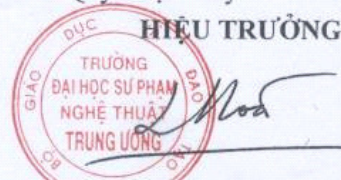 HIỆU TRƯỞNG
BỘ GIÁO DỤC ĐÀO TẠO
TRƯỜNG
ĐẠI HỌC SƯ PHẠM
NGHỆ THUẬT
TRUNG ƯƠNG